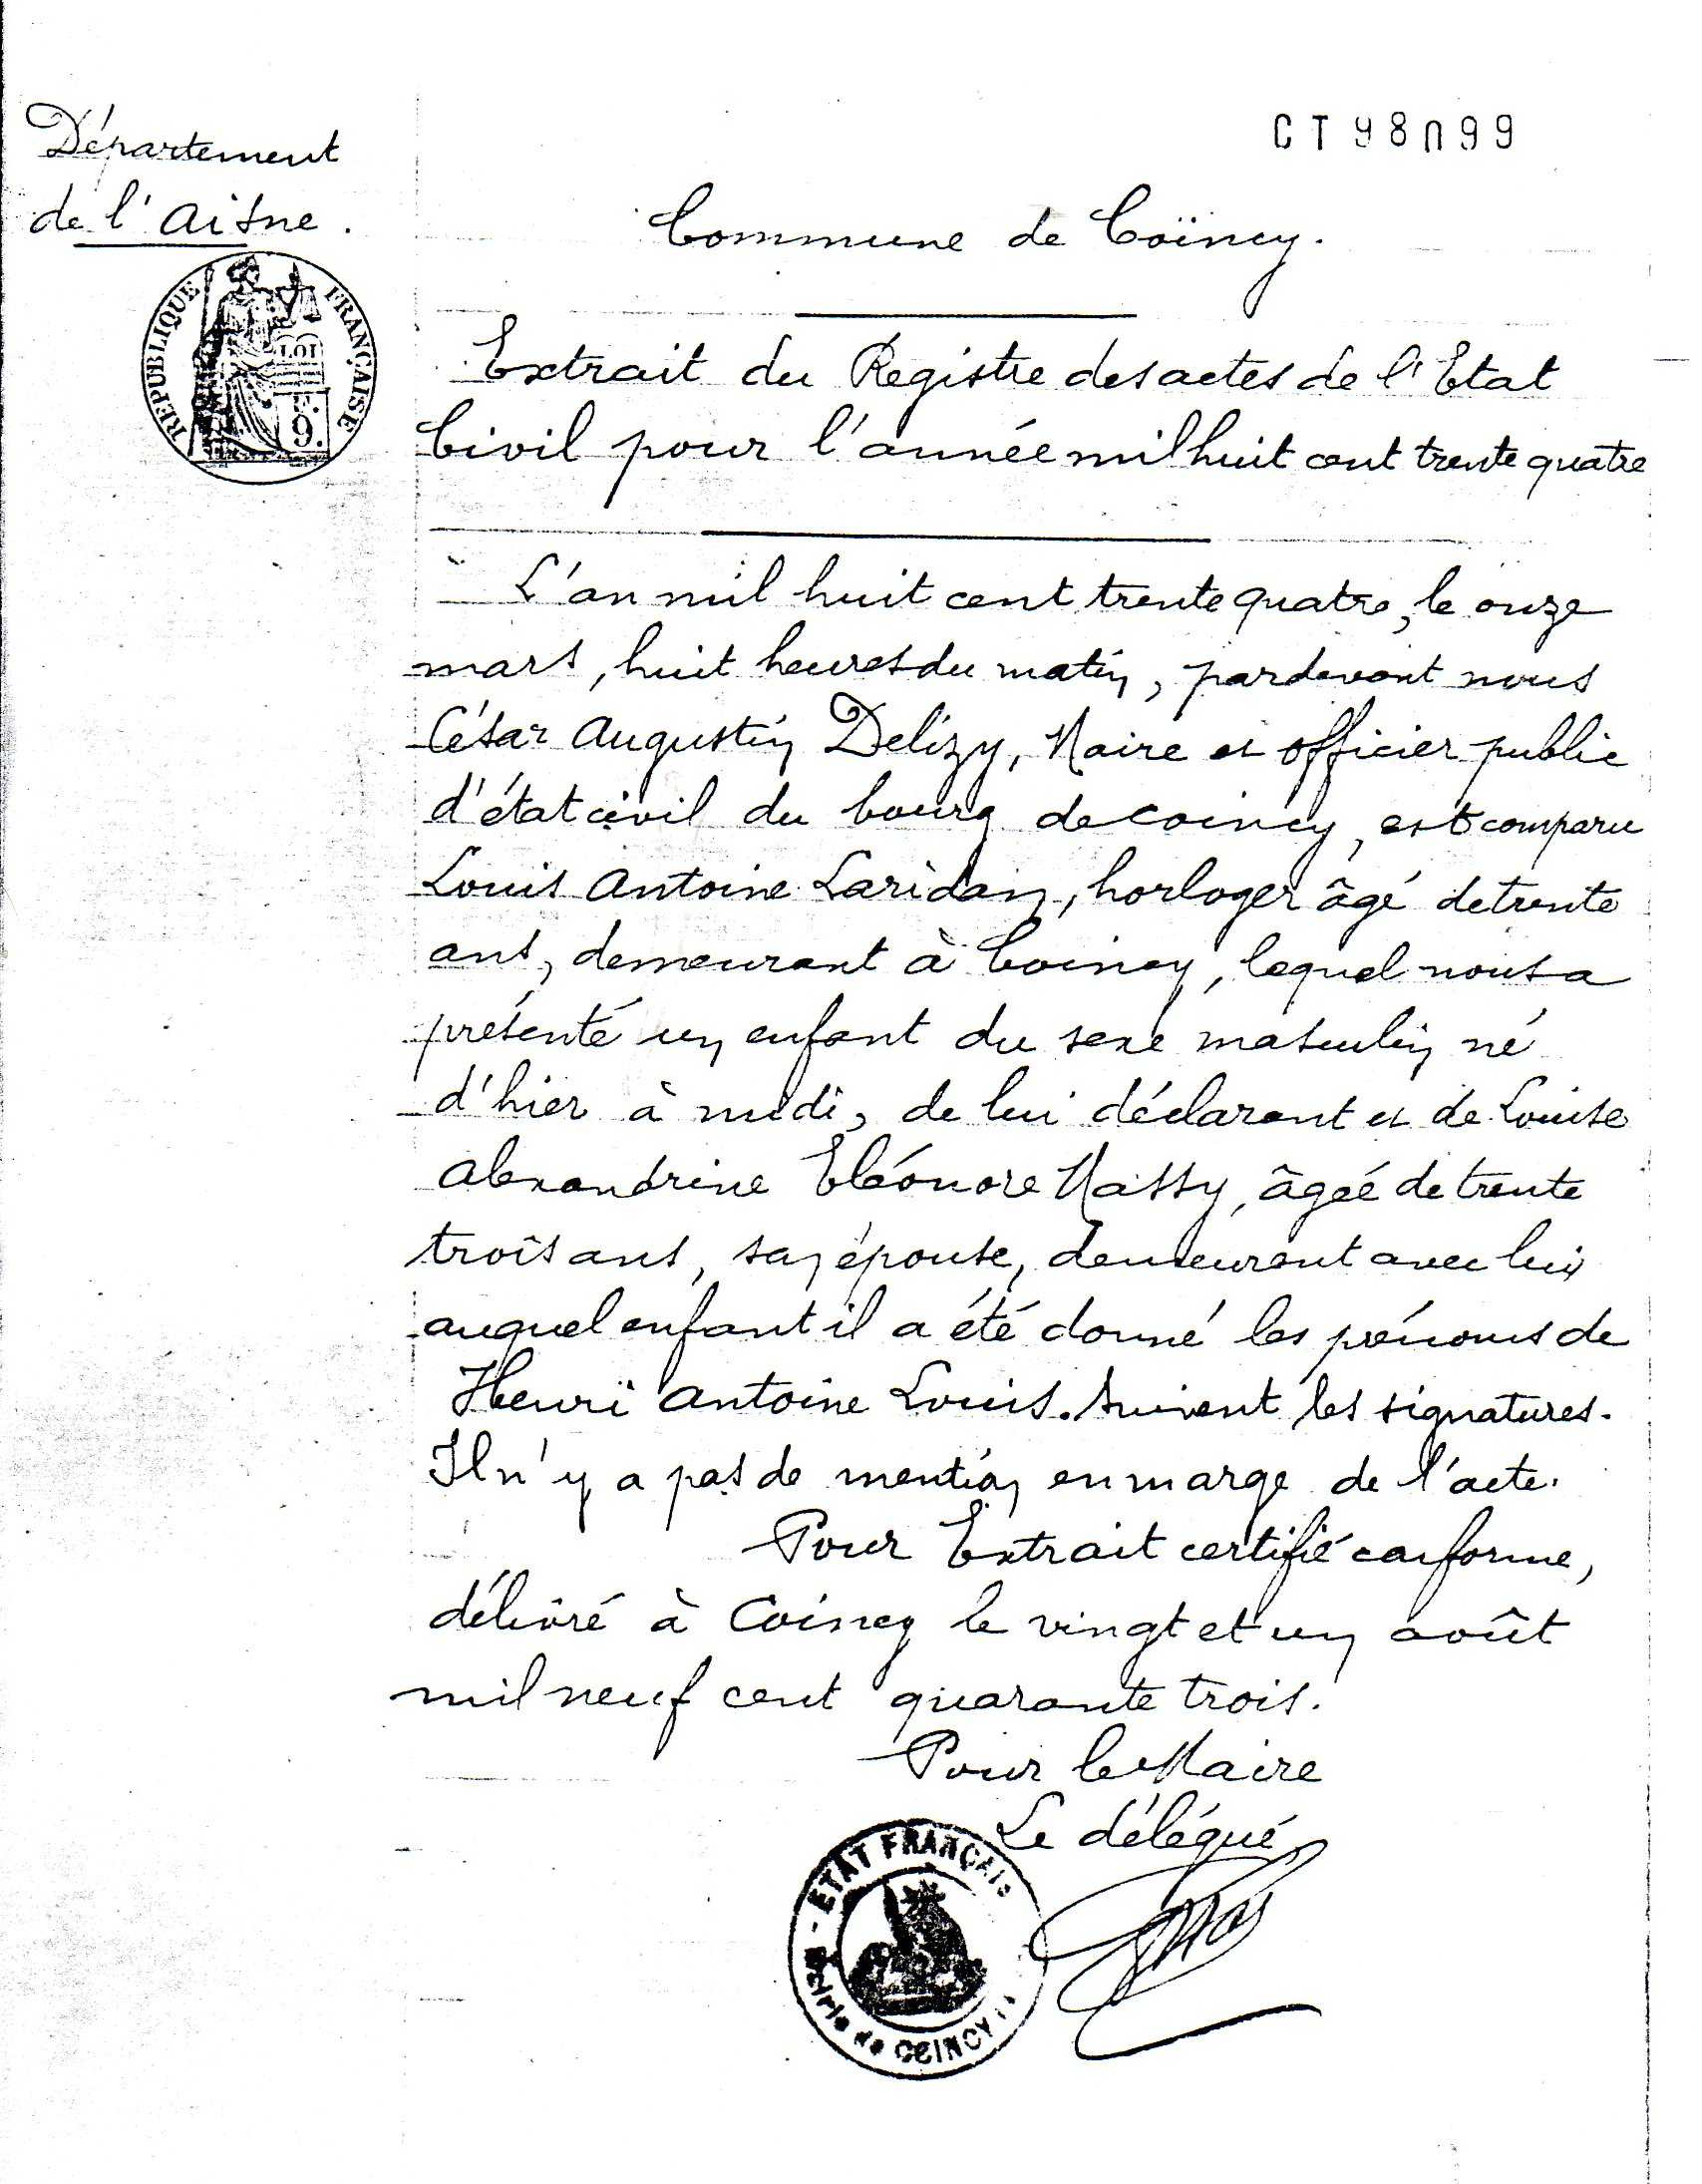 Département
de l'Aisne.
CT98099
Commune de Coïncy.
RÉPUBLIQUE FRANÇAISE
LOI
F.
9.
Extrait du Registre des actes de l'Etat
Civil pour l'année mil huit cent trente quatre
L'an mil huit cent trente quatre, le onze
mars, huit heures du matin, pardevant nous
César Augustin Delizy, Maire et officier public
d'état civil du bourg de Coincy, est comparu
Louis Antoine Laridan, horloger âgé de trente
ans, demeurant à Coincy, lequel nous a
présenté un enfant du sexe masculin né
d'hier à midi, de lui déclarant et de Louise
Alexandrine Eléonore Massy, âgée de trente
trois ans, son épouse, demeurant avec lui
auquel enfant il a été donné les prénoms de
Henri Antoine Louis. Suivent les signatures.
Il n'y a pas de mention en marge de l'acte.
Pour Extrait certifié conforme,
délivré à Coincy le vingt et un août
mil neuf cent quarante trois.
Pour le Maire
Le délégué
ETAT FRANÇAIS
Mairie de COINCY